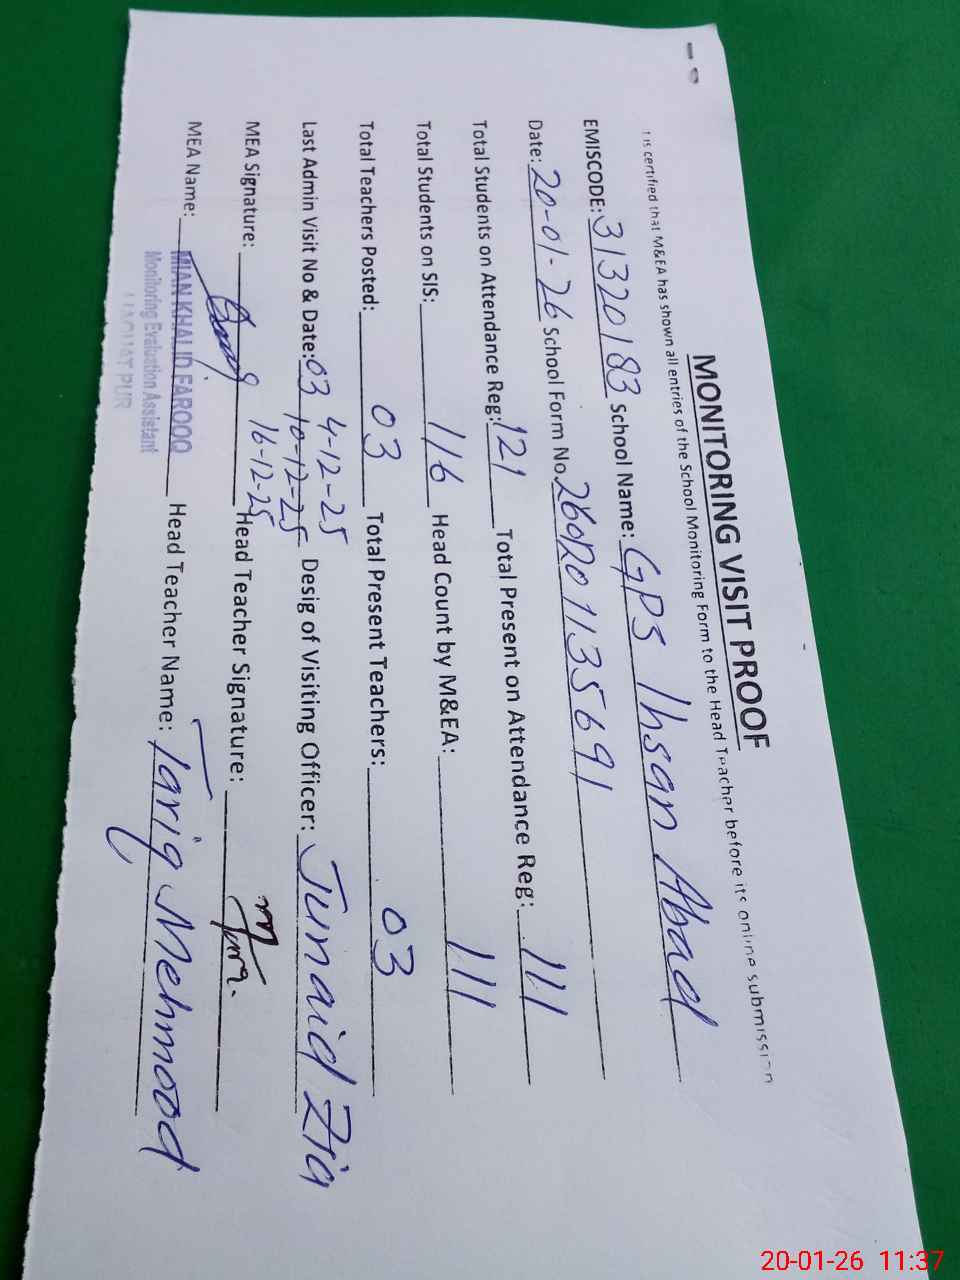 MONITORING VISIT PROOF
t is certified that M&EA has shown all entries of the School Monitoring Form to the Head Teacher before its online submission
EMISCODE: 31320183 School Name: GPS Ihsan Abad
Date: 20-01-26 School Form No. 260R01135691
Total Students on Attendance Reg: 121 Total Present on Attendance Reg: 111
Total Students on SIS: 116 Head Count by M&EA: 111
Total Teachers Posted: 03 Total Present Teachers: 03
4-12-25
Last Admin Visit No & Date: 03 10-12-25 Desig of Visiting Officer: Junaid Zia
16-12-25
MEA Signature: Head Teacher Signature:
MEA Name: MIAN KHALID FAROOQ Head Teacher Name: Tariq Mehmood
Monitoring Evaluation Assistant
LIAQUAT PUR
20-01-26 11:37